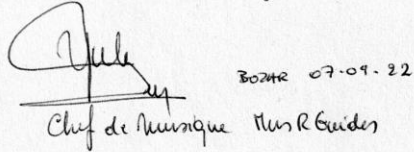 BOZAR 07-09-22
Chef de Musique Mus R Guides